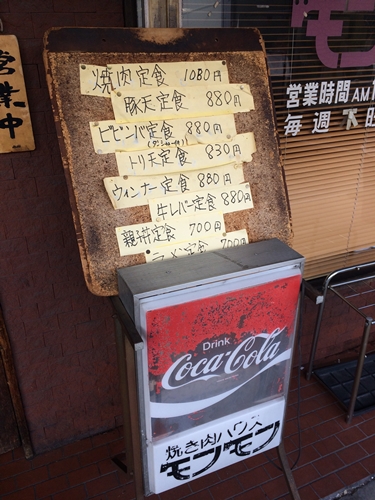 営業中
焼肉定食 1080円
豚天定食 880円
ビビンバ定食 880円
トリ天定食 830円
ウィンナー定食 880円
牛レバー定食 880円
親子丼定食 700円
ラーメン定食 700円
営業時間 AM
毎週
Drink
Coca-Cola
焼き肉ハウス
モンモン